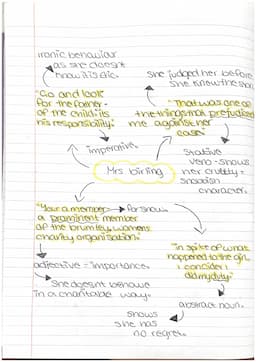 ironic behaviour
as she doesnt
know it is Eric.
"Go and look
for the father
of the child. its
his responsibility."
imperative.
She judged her before
she knew the
"That was one of
the things that prejudiced
me against her
case."
Stative
verb - shows
her cruelty +
snobbish
character.
Mrs birling
"Your a member
a prominent member
of the brumley womens
charity organisation."
for show.
adjective = importance.
She doesnt behave
in a charitable way.
"In spite of what
happened to the girl
i consider i
did my duty."
abstract noun.
shows
she has
no regret.